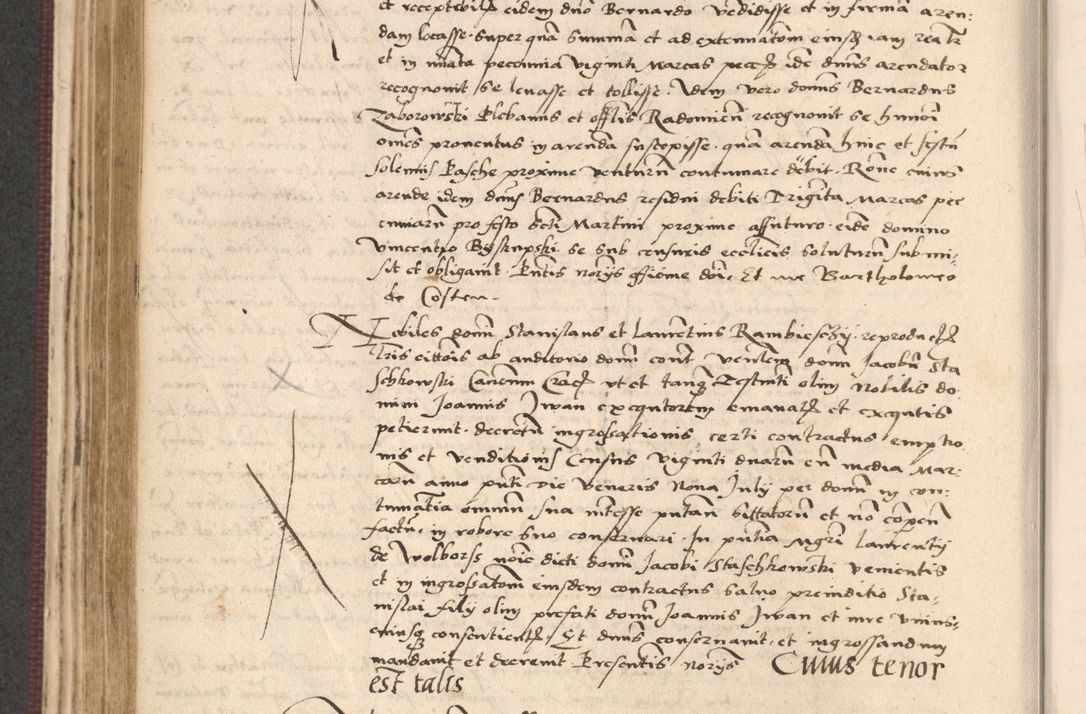 et receptibil eidem dno Bernardo vedidisse et in firmam aren-
dam locasse. Super qua summa et ad extenuatom eiusq iam reatr
et in nuata pecunia viginti Marcas pecc ide dnus arendator
recognouit se leuasse et tollisse. Idem vero domus Bernardus
Zaborowski Plebanus et offtis Radomien recognouit se hmoi
omes prouentus in arenda suscepisse. qua arenda hinc et festu
solemis Pasche proxime ventura continuare debit. Rone cuius
arende idem dnus Bernardus residui debiti Triginta Marcas pec
cuniaru pro festo scti Martini proxime affuturo eide domino
Vincentio Byskupski se sub censuris ecclicis soluturu submi-
sit et obligauit. Pntibs norys Et me Bartholomeo
de Costen.
Nobiles domi Stanislaus et Laurentius Rambieschy reproduct
lris cittois ab auditorio domi cont venlem domi Jacobu Sta
schkowski Canonicu Crac vt et tanq Testmti olim Nobilis do-
mini Joannis Iwan exequtorem emanat et exequtis
petierunt. decretu ingrossationis certi contractus emptio
nis et venditionis Census viginti duaru cu media Mar-
caru anno pnti die Veneris Nona July per domi in con-
tumatia omniu sua interesse putan cittatoru et no copen
factu, in robore suo conseruari. In pntia Mgri Laurenty
de Wolborss noie dicti domi Jacobi Staschkowski venientis
et in ingrossatom eiusdem contractus saluo preiuditio Sta-
nislai fily olim prefati domi Joannis Iwan et iure vnius-
cuiusq consentient. Et dnus conseruauit et ingrossandum
mandauit et decreuit Presentibs norys Cuius tenor
est talis